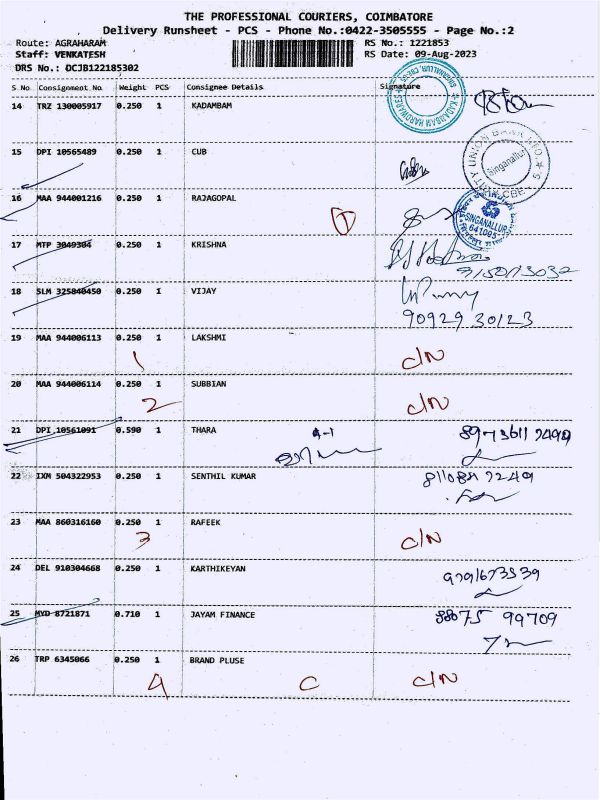 THE PROFESSIONAL COURIERS, COIMBATORE
Delivery Runsheet - PCS - Phone No.:0422-3505555 - Page No.:2
Route: AGRAHARAM
RS No.: 1221853
Staff: VENKATESH
RS Date: 09-Aug-2023
DRS No.: DCJB122185302
S No Consignment No Weight PCS Consignee Details Signature
14 TRZ 130005917 0.250 1 KADAMBAM
15 DPI 10565489 0.250 1 CUB
16 MAA 944001216 0.250 1 RAJAGOPAL
SINGANALLUR
641005
17 MTP 3049304 0.250 1 KRISHNA
18 SLM 325840450 0.250 1 VIJAY
90929 30123
19 MAA 944006113 0.250 1 LAKSHMI
1 C/N
20 MAA 944006114 0.250 1 SUBBIAN
2 C/N
21 DPI 10561091 0.590 1 THARA
22 IXM 504322953 0.250 1 SENTHIL KUMAR
23 MAA 860316160 0.250 1 RAFEEK
3 C/N
24 DEL 910304668 0.250 1 KARTHIKEYAN
25 MYD 8721871 0.710 1 JAYAM FINANCE
88075 99709
26 TRP 6345066 0.250 1 BRAND PLUSE
4 C C/N